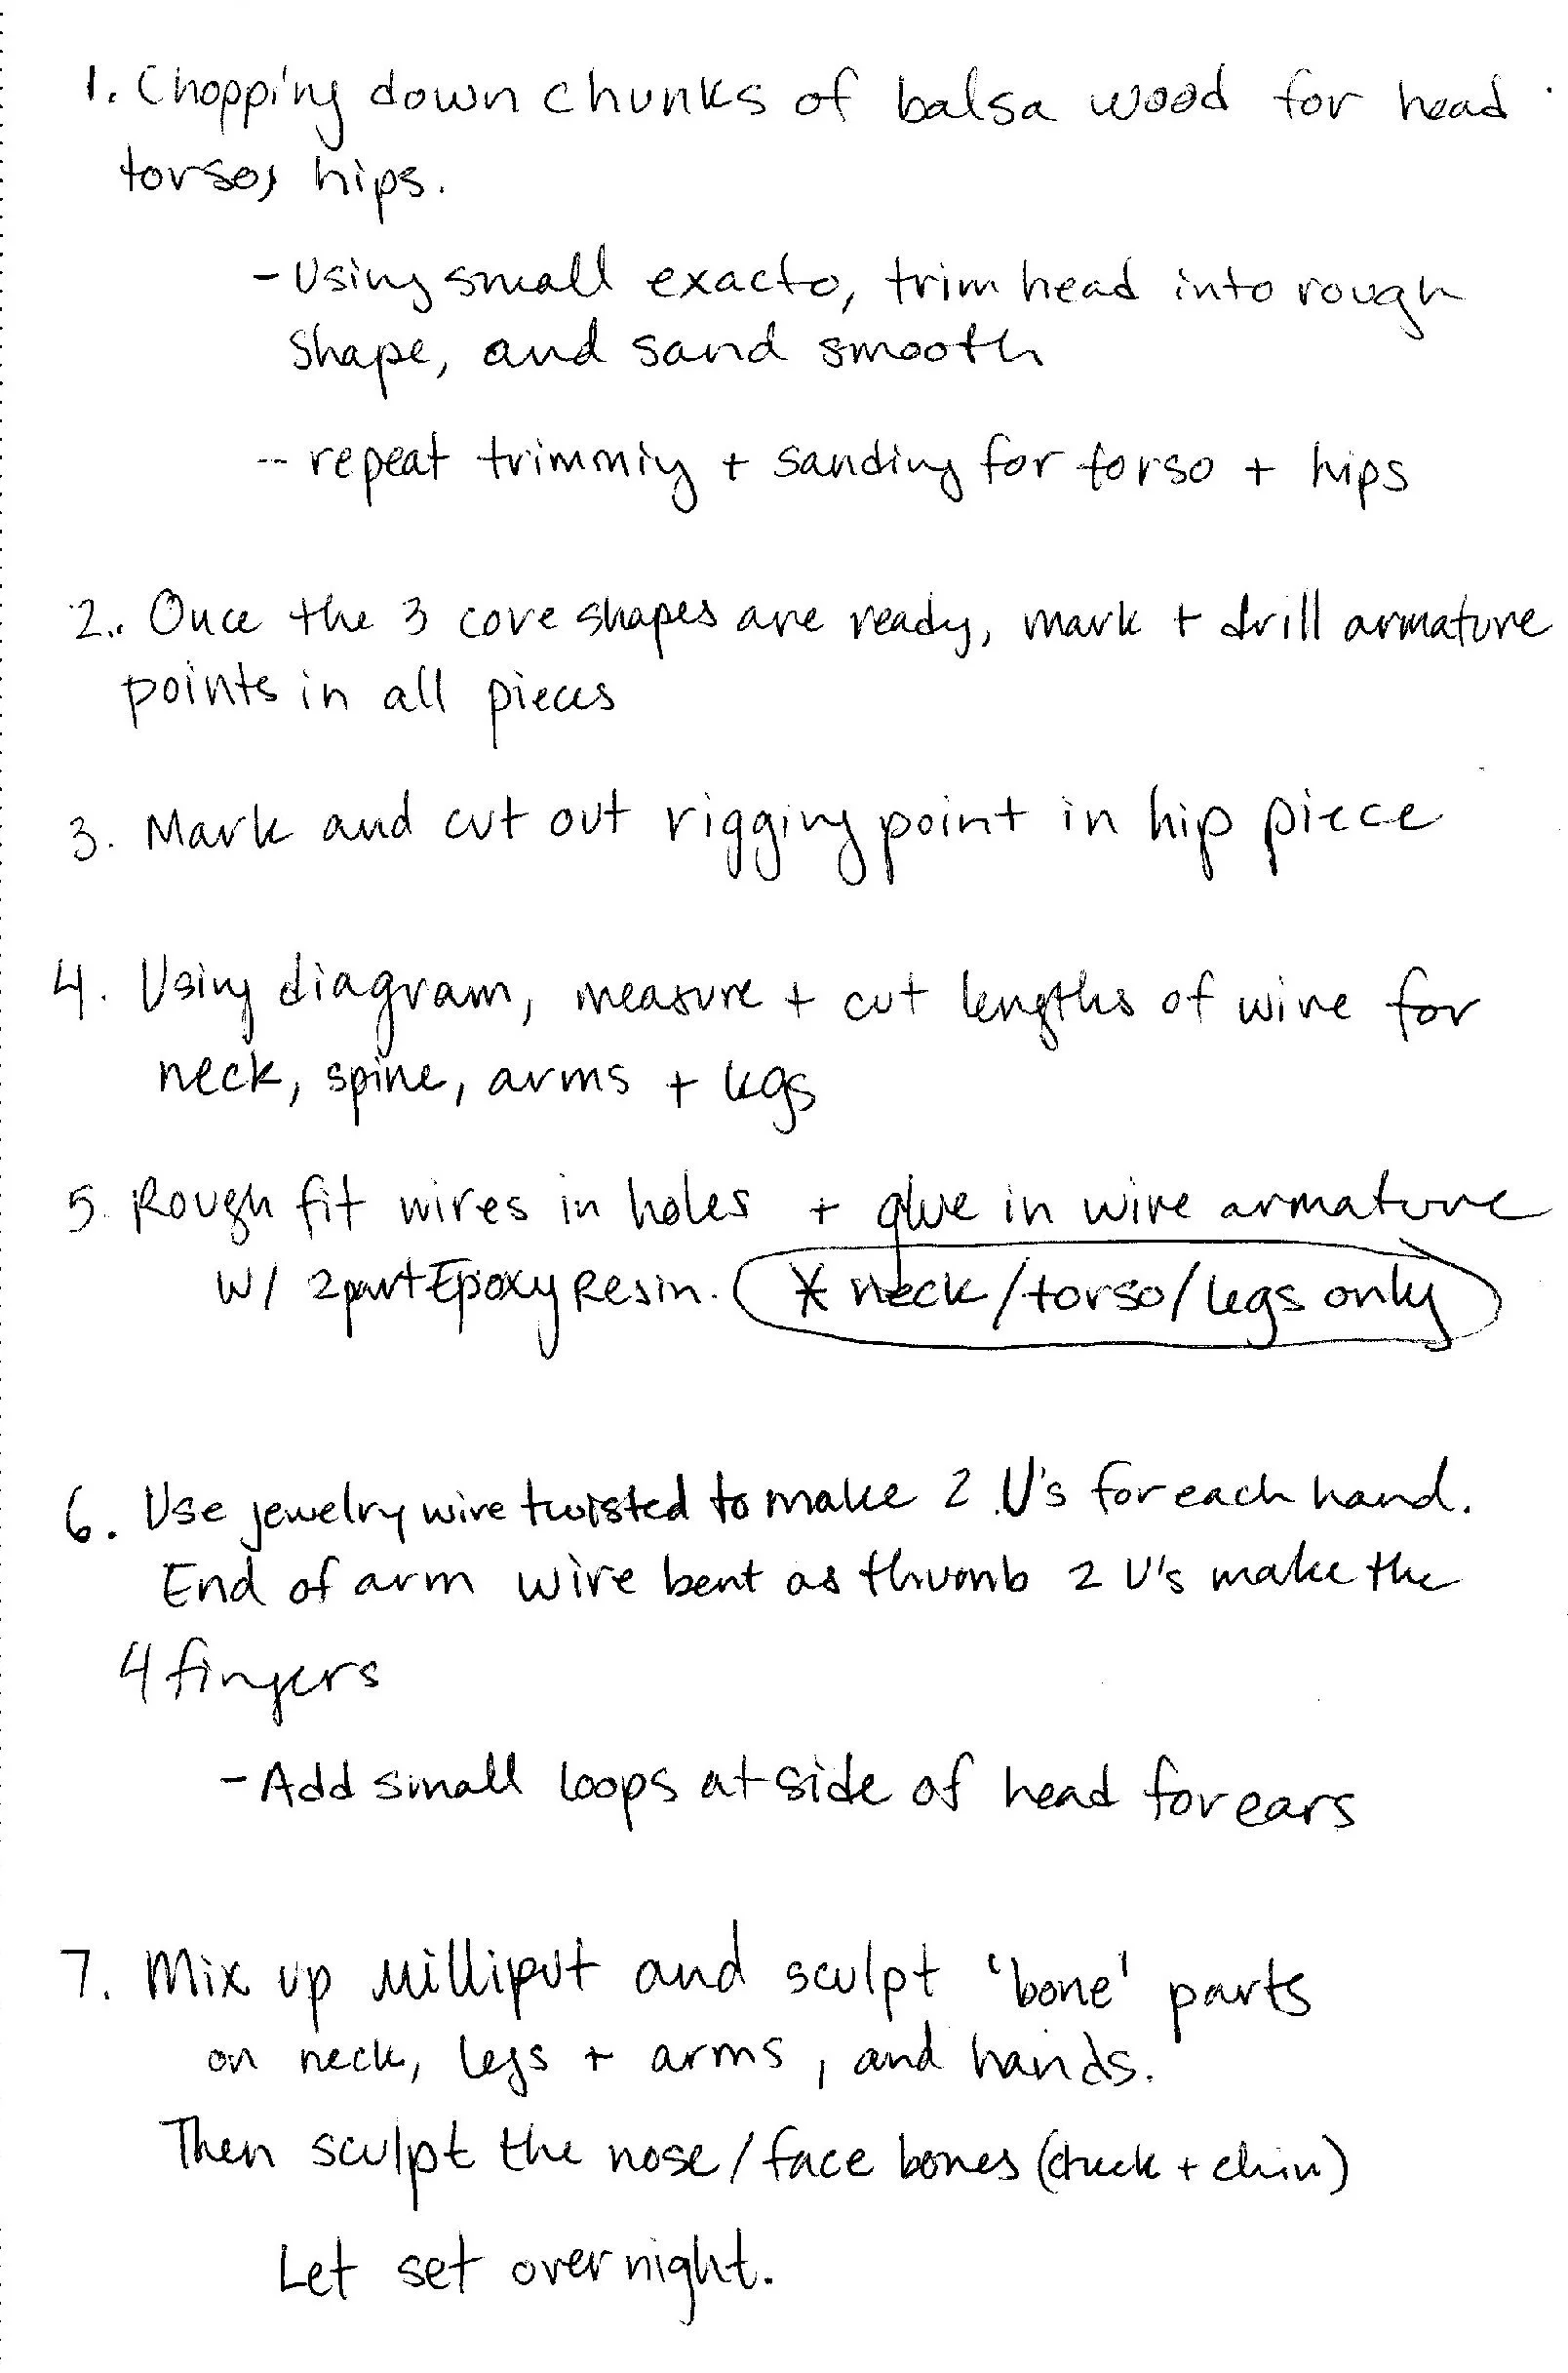 1. Chopping down chunks of balsa wood for head
torso, hips.
- Using small exacto, trim head into rough
shape, and sand smooth
-- repeat trimming + sanding for torso + hips
2. Once the 3 core shapes are ready, mark + drill armature
points in all pieces
3. Mark and cut out rigging point in hip piece
4. Using diagram, measure + cut lengths of wire for
neck, spine, arms + legs
5. Rough fit wires in holes + glue in wire armature
w/ 2part Epoxy Resin. * neck/torso/legs only
6. Use jewelry wire twisted to make 2 U's for each hand.
End of arm wire bent as thumb 2 U's make the
4 fingers
- Add small loops at side of head for ears
7. Mix up Milliput and sculpt 'bone' parts
on neck, legs + arms, and hands.
Then sculpt the nose/face bones (cheek + chin)
Let set overnight.